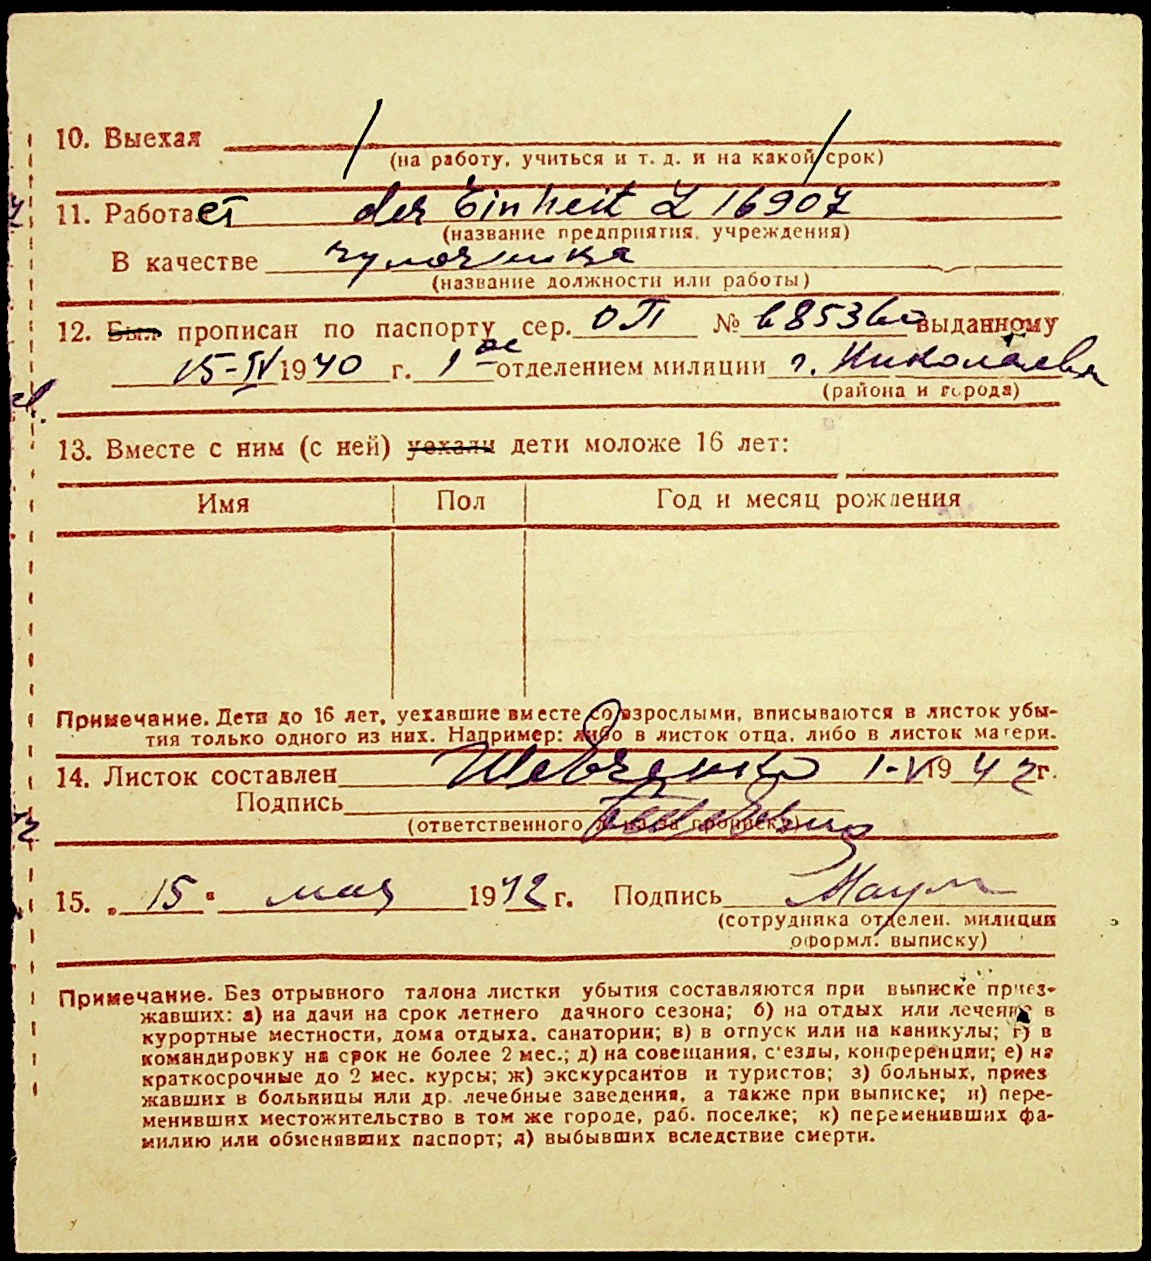 10. Выехал
(на работу, учиться и т. д. и на какой срок)
11. Работает der Einheit L 16907
(название предприятия, учреждения)
В качестве
(название должности или работы)
12. Был прописан по паспорту сер. ОП № 685360 выданному
15-IV 1940 г. 1ое отделением милиции г. Николаева
(района и города)
13. Вместе с ним (с ней) уехали дети моложе 16 лет:
Имя Пол Год и месяц рождения
Примечание. Дети до 16 лет, уехавшие вместе со взрослыми, вписываются в листок убы-
тия только одного из них. Например: либо в листок отца, либо в листок матери.
14. Листок составлен Шевченко 1-V 1942 г.
Подпись
(ответственного лица за прописку)
15. „15" мая 1942 г. Подпись
(сотрудника отделен. милиции
оформл. выписку)
Примечание. Без отрывного талона листки убытия составляются при выписке приез-
жавших: а) на дачи на срок летнего дачного сезона; б) на отдых или лечение в
курортные местности, дома отдыха, санатории; в) в отпуск или на каникулы; г) в
командировку на срок не более 2 мес.; д) на совещания, с'езды, конференции; е) на
краткосрочные до 2 мес. курсы; ж) экскурсантов и туристов; з) больных, приез
жавших в больницы или др. лечебные заведения, а также при выписке; и) пере-
менивших местожительство в том же городе, раб. поселке; к) переменивших фа-
милию или обменявших паспорт; л) выбывших вследствие смерти.